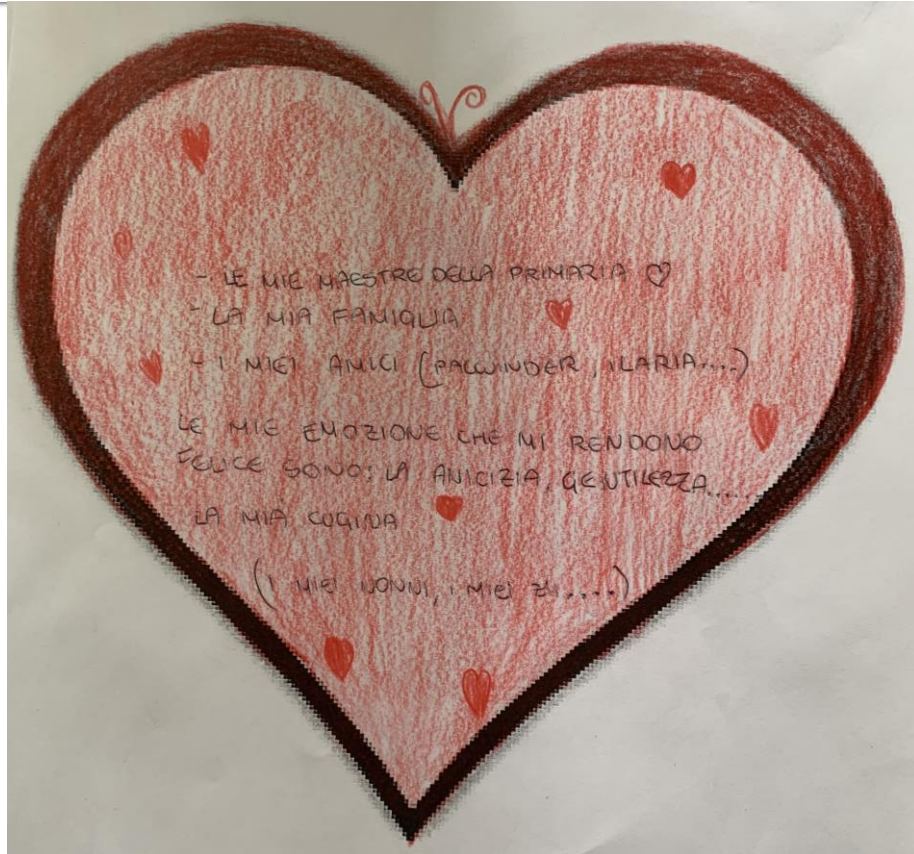 - LE MIE MAESTRE DELLA PRIMARIA ♡
- LA MIA FAMIGLIA
- I MIEI AMICI (PALWINDER, ILARIA....)
LE MIE EMOZIONE CHE MI RENDONO
FELICE SONO: LA AMICIZIA, GENTILEZZA.....
LA MIA CUGINA
(I MIEI NONNI, I MIEI ZII.....)